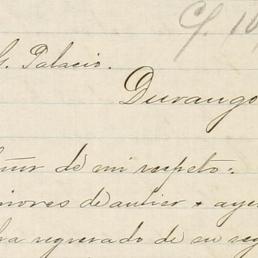 C/. 10
G. Palacio.
Durango
ñor de mi respeto:
iores de antier & aye
ha regresado de su reg